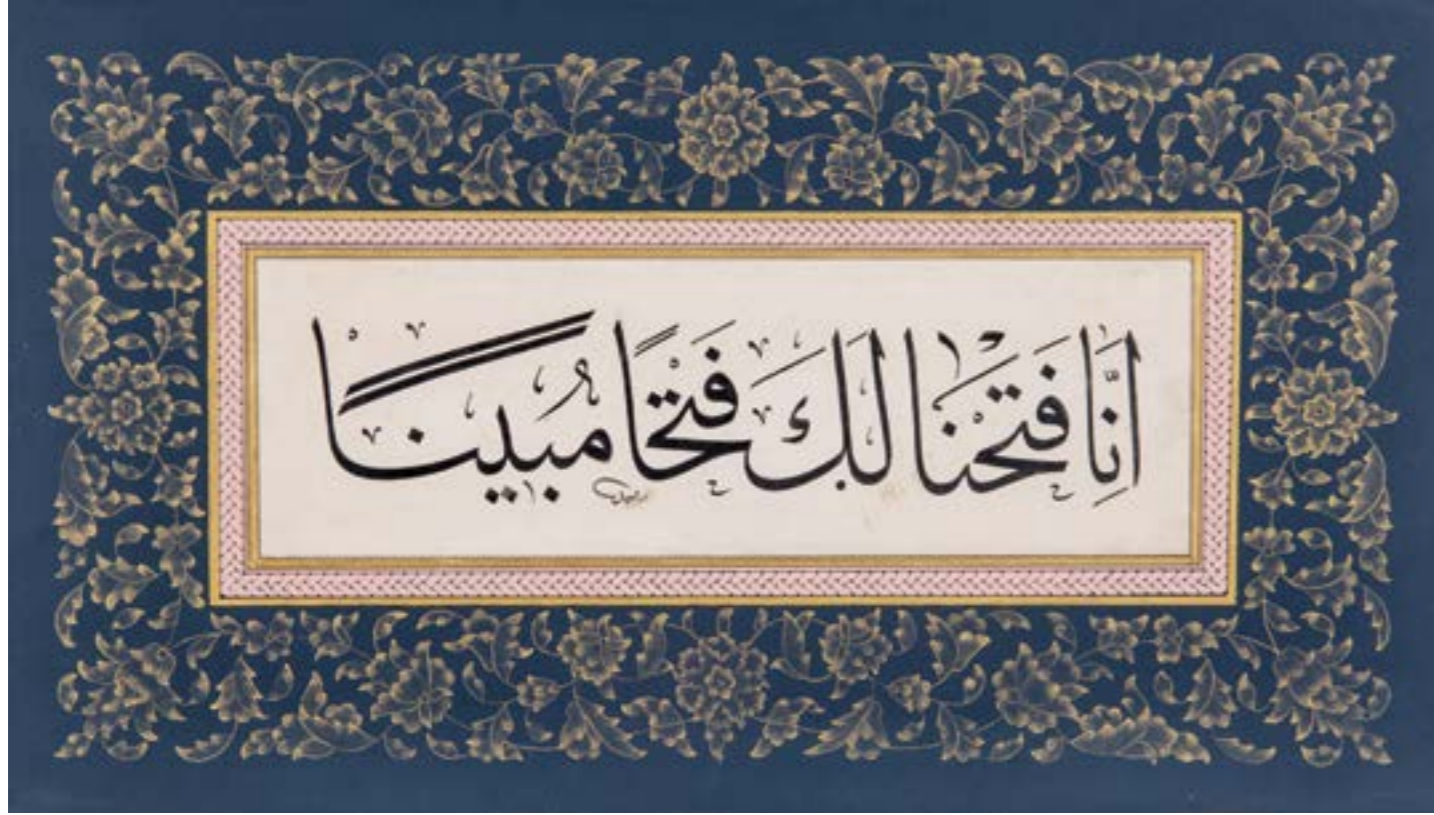 اِنَّا فَتَحْنَا لَكَ فَتْحًا مُبٖينًا